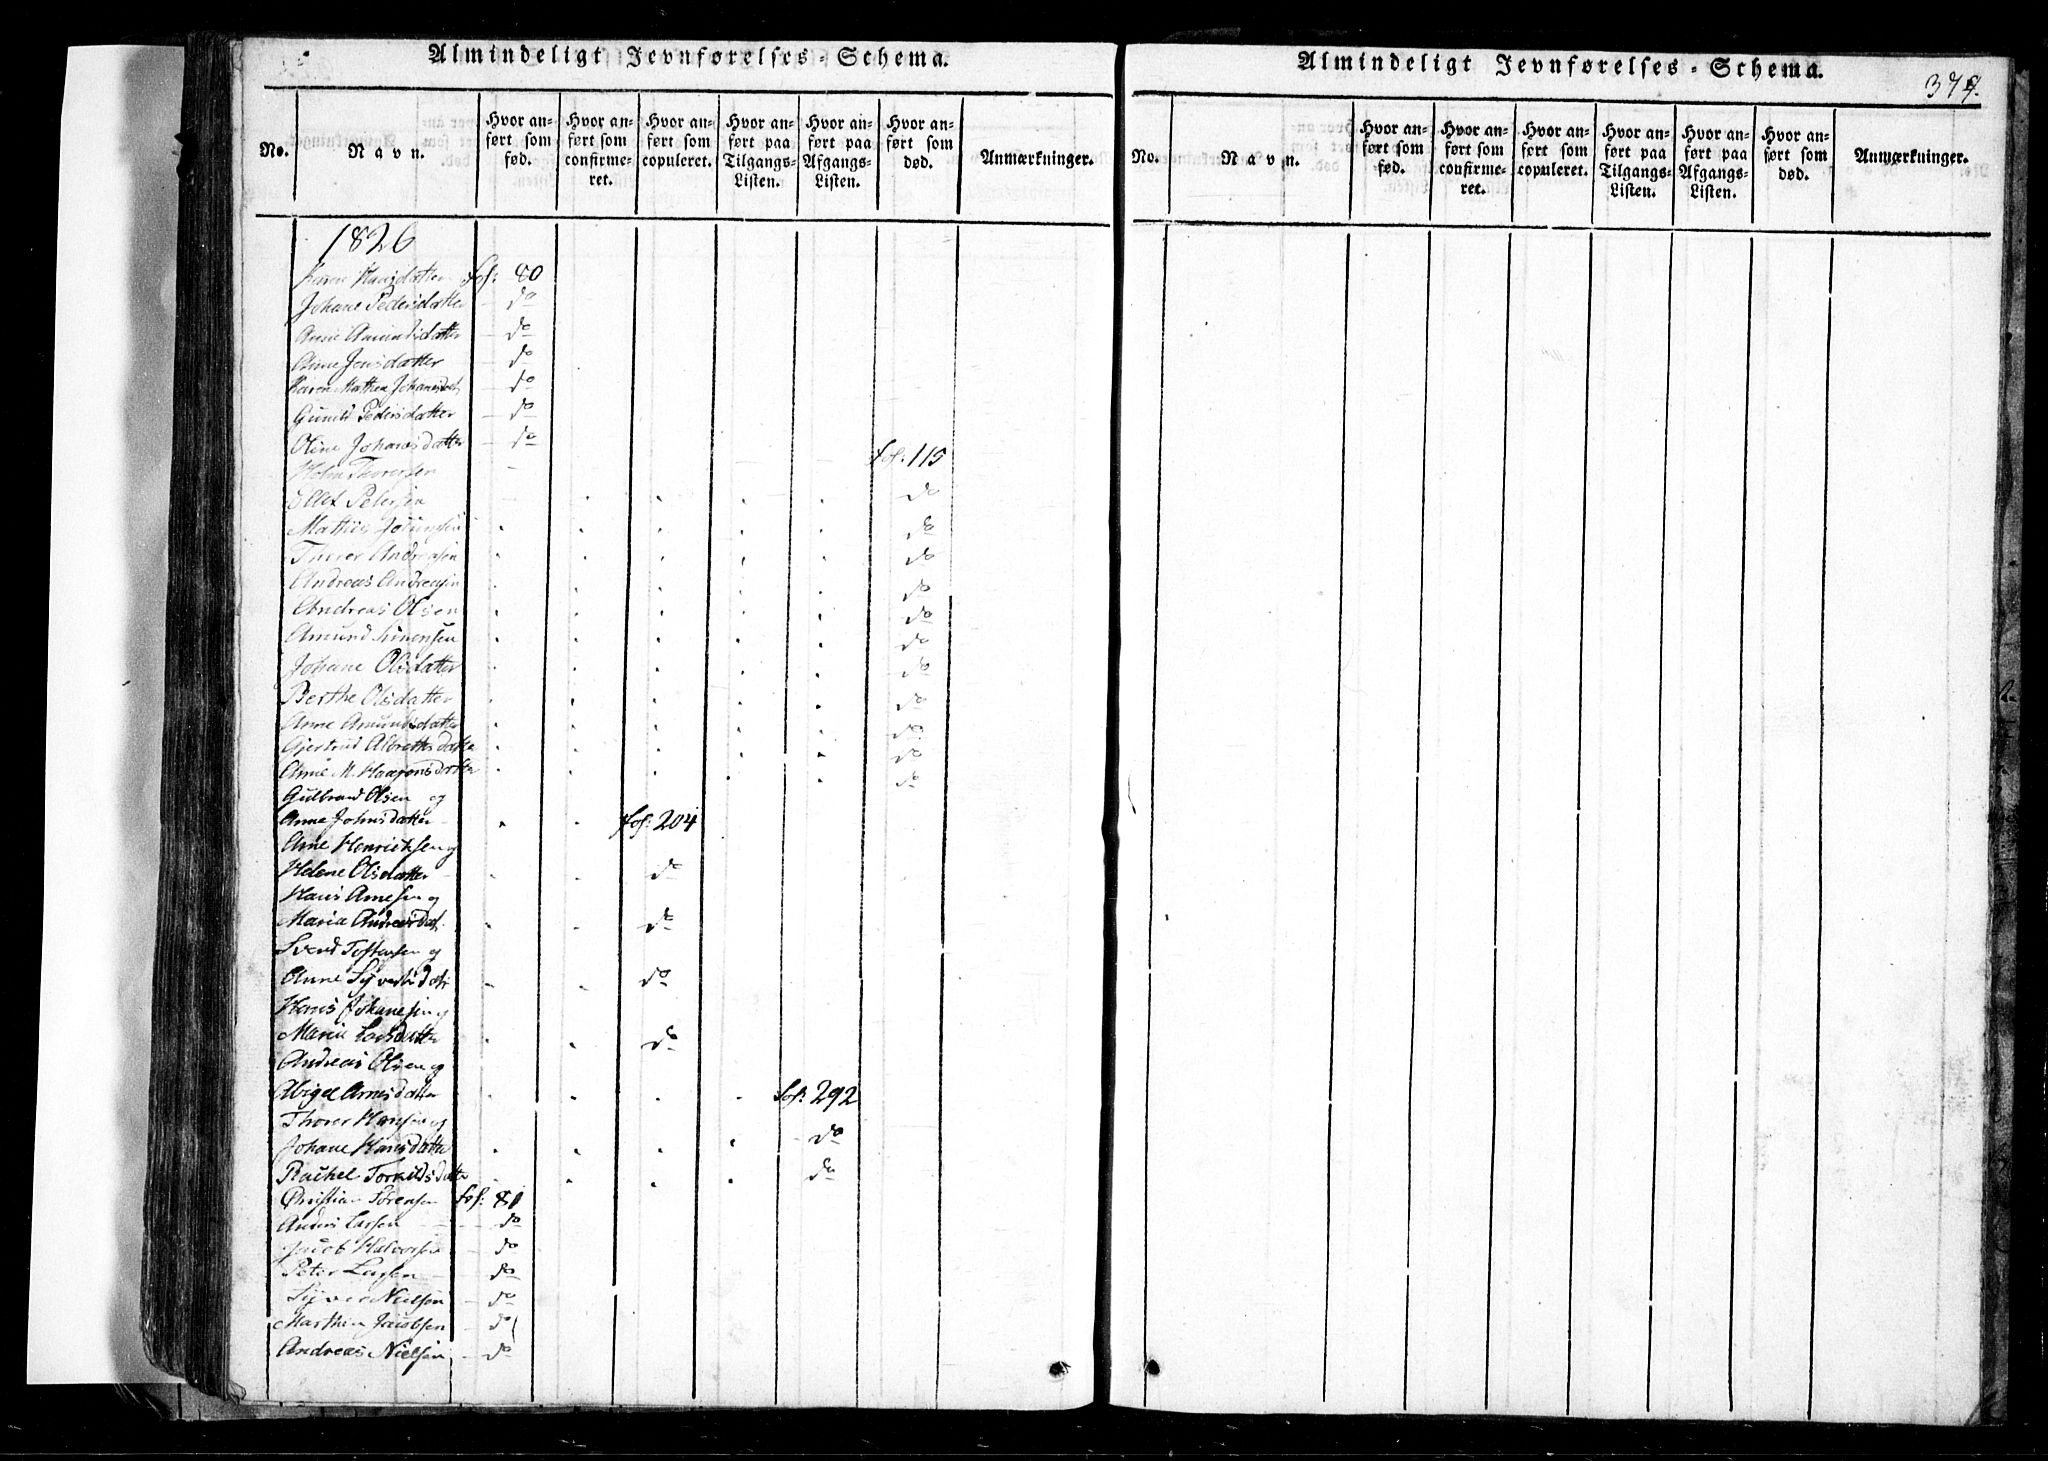 Almindeligt Jevnførelses-Schema.
No.
Navn.
Hvor anført som fød.
Hvor anført som confirmeret.
Hvor anført som copuleret.
Hvor anført paa Tilgangs-Listen.
Hvor anført paa Afgangs-Listen.
Hvor anført som død.
Anmærkninger.
1826
Karen Hansdatter fol: 80
Johane Pedersdatter - do
Anne Amundsdatter - do
Anne Jensdatter - do
Karen Mathea Johansdat, - do
Gunild Pedersdatter - do
Oline Johansdatter - do
Thoresen fol: 115
Petersen do
Mathis do
Thorer Andreasen do
Andreas Andreasen do
Andreas Olsen do
Amund Simensen do
Johane Olsdatter do
Berthe Olsdatter do
Anne Amundsdatter do
Gjertrud Albretsdatter do
Anne M. Haagensdatter do
Gulbrand Olsen og
Anne Johnsdatter fol: 204
Arne Henrichsen og
Helene Olsdatter do
Hans Arnesen og
Maria Andreasdat. do
Svend Tostensen og
Anne Syversdatr do
Hans Johanesen og
Marie Larsdatter do
Andreas Olsen og
Abigel Arnesdatter fol: 292
Thorer Hansen og
Johane Hansdatter - do
Rachel Torkildsdatter do
Christian Sørensen fol: 81
Anders Larsen - do
Jacob Halvorsen - do
Peter Larsen - do
Syver Nielsen - do
Marthin Jacobsen - do
Andreas Nielsen - do
Almindeligt Jevnførelses-Schema.
374.
No.
Navn.
Hvor anført som fød.
Hvor anført som confirmeret.
Hvor anført som copuleret.
Hvor anført paa Tilgangs-Listen.
Hvor anført paa Afgangs-Listen.
Hvor anført som død.
Anmærkninger.